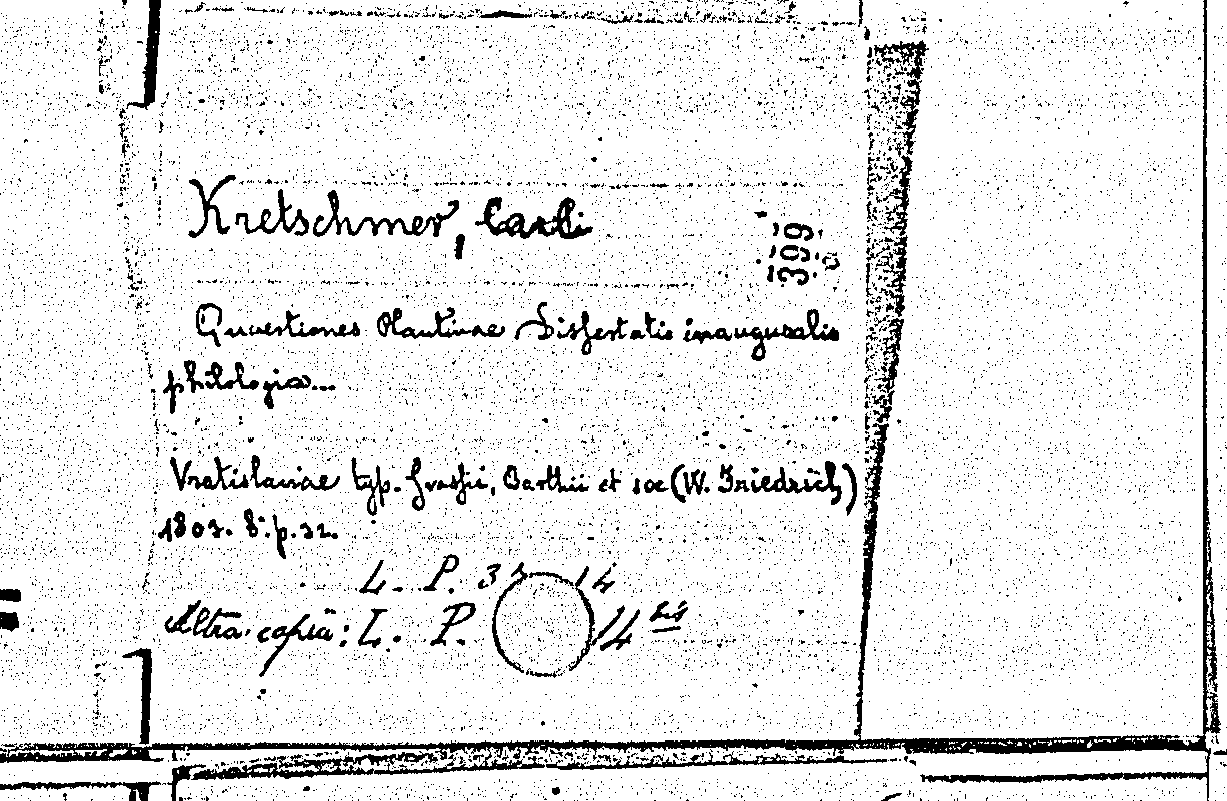 Kretschmer, Carli
399
Quaestiones Plautinae Dissertatio inauguralis
philologia...
Vratislaviae typ. Grassi, Barthii et soc (W. Friedrich)
1803. 8°. p. 32.
L. P. 14
Altra copia: L. P. 14 bis